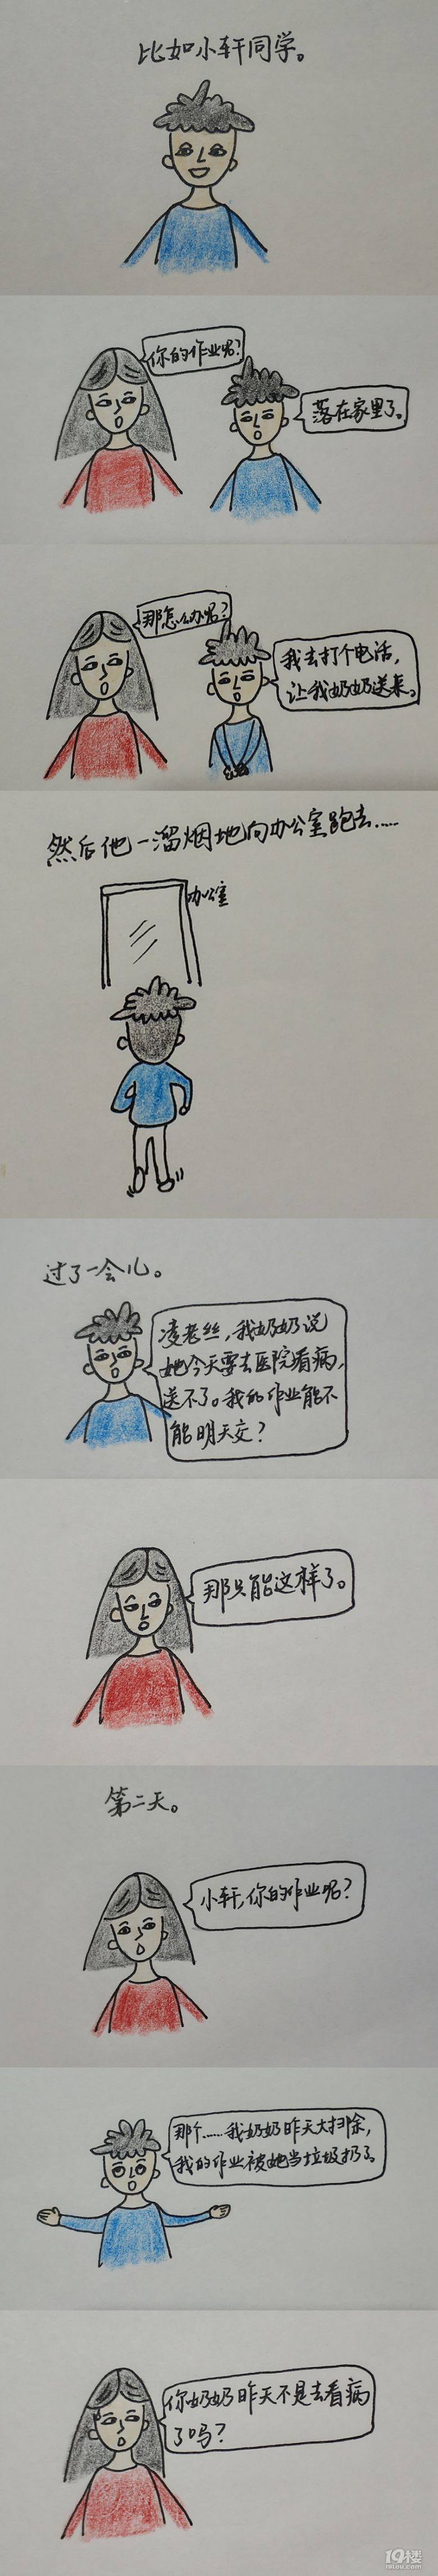 比如小轩同学。
你的作业呢？
落在家里了。
那怎么办呢？
我去打个电话，
让我奶奶送来。
然后他一溜烟地向办公室跑去……
办公室
过了一会儿。
凌老丝，我奶奶说
她今天要去医院看病，
送不了。我的作业能不
能明天交？
那只能这样了。
第二天。
小轩，你的作业呢？
那个……我奶奶昨天大扫除，
我的作业被她当垃圾扔了。
你奶奶昨天不是去看病
了吗？
19楼
19lou.com